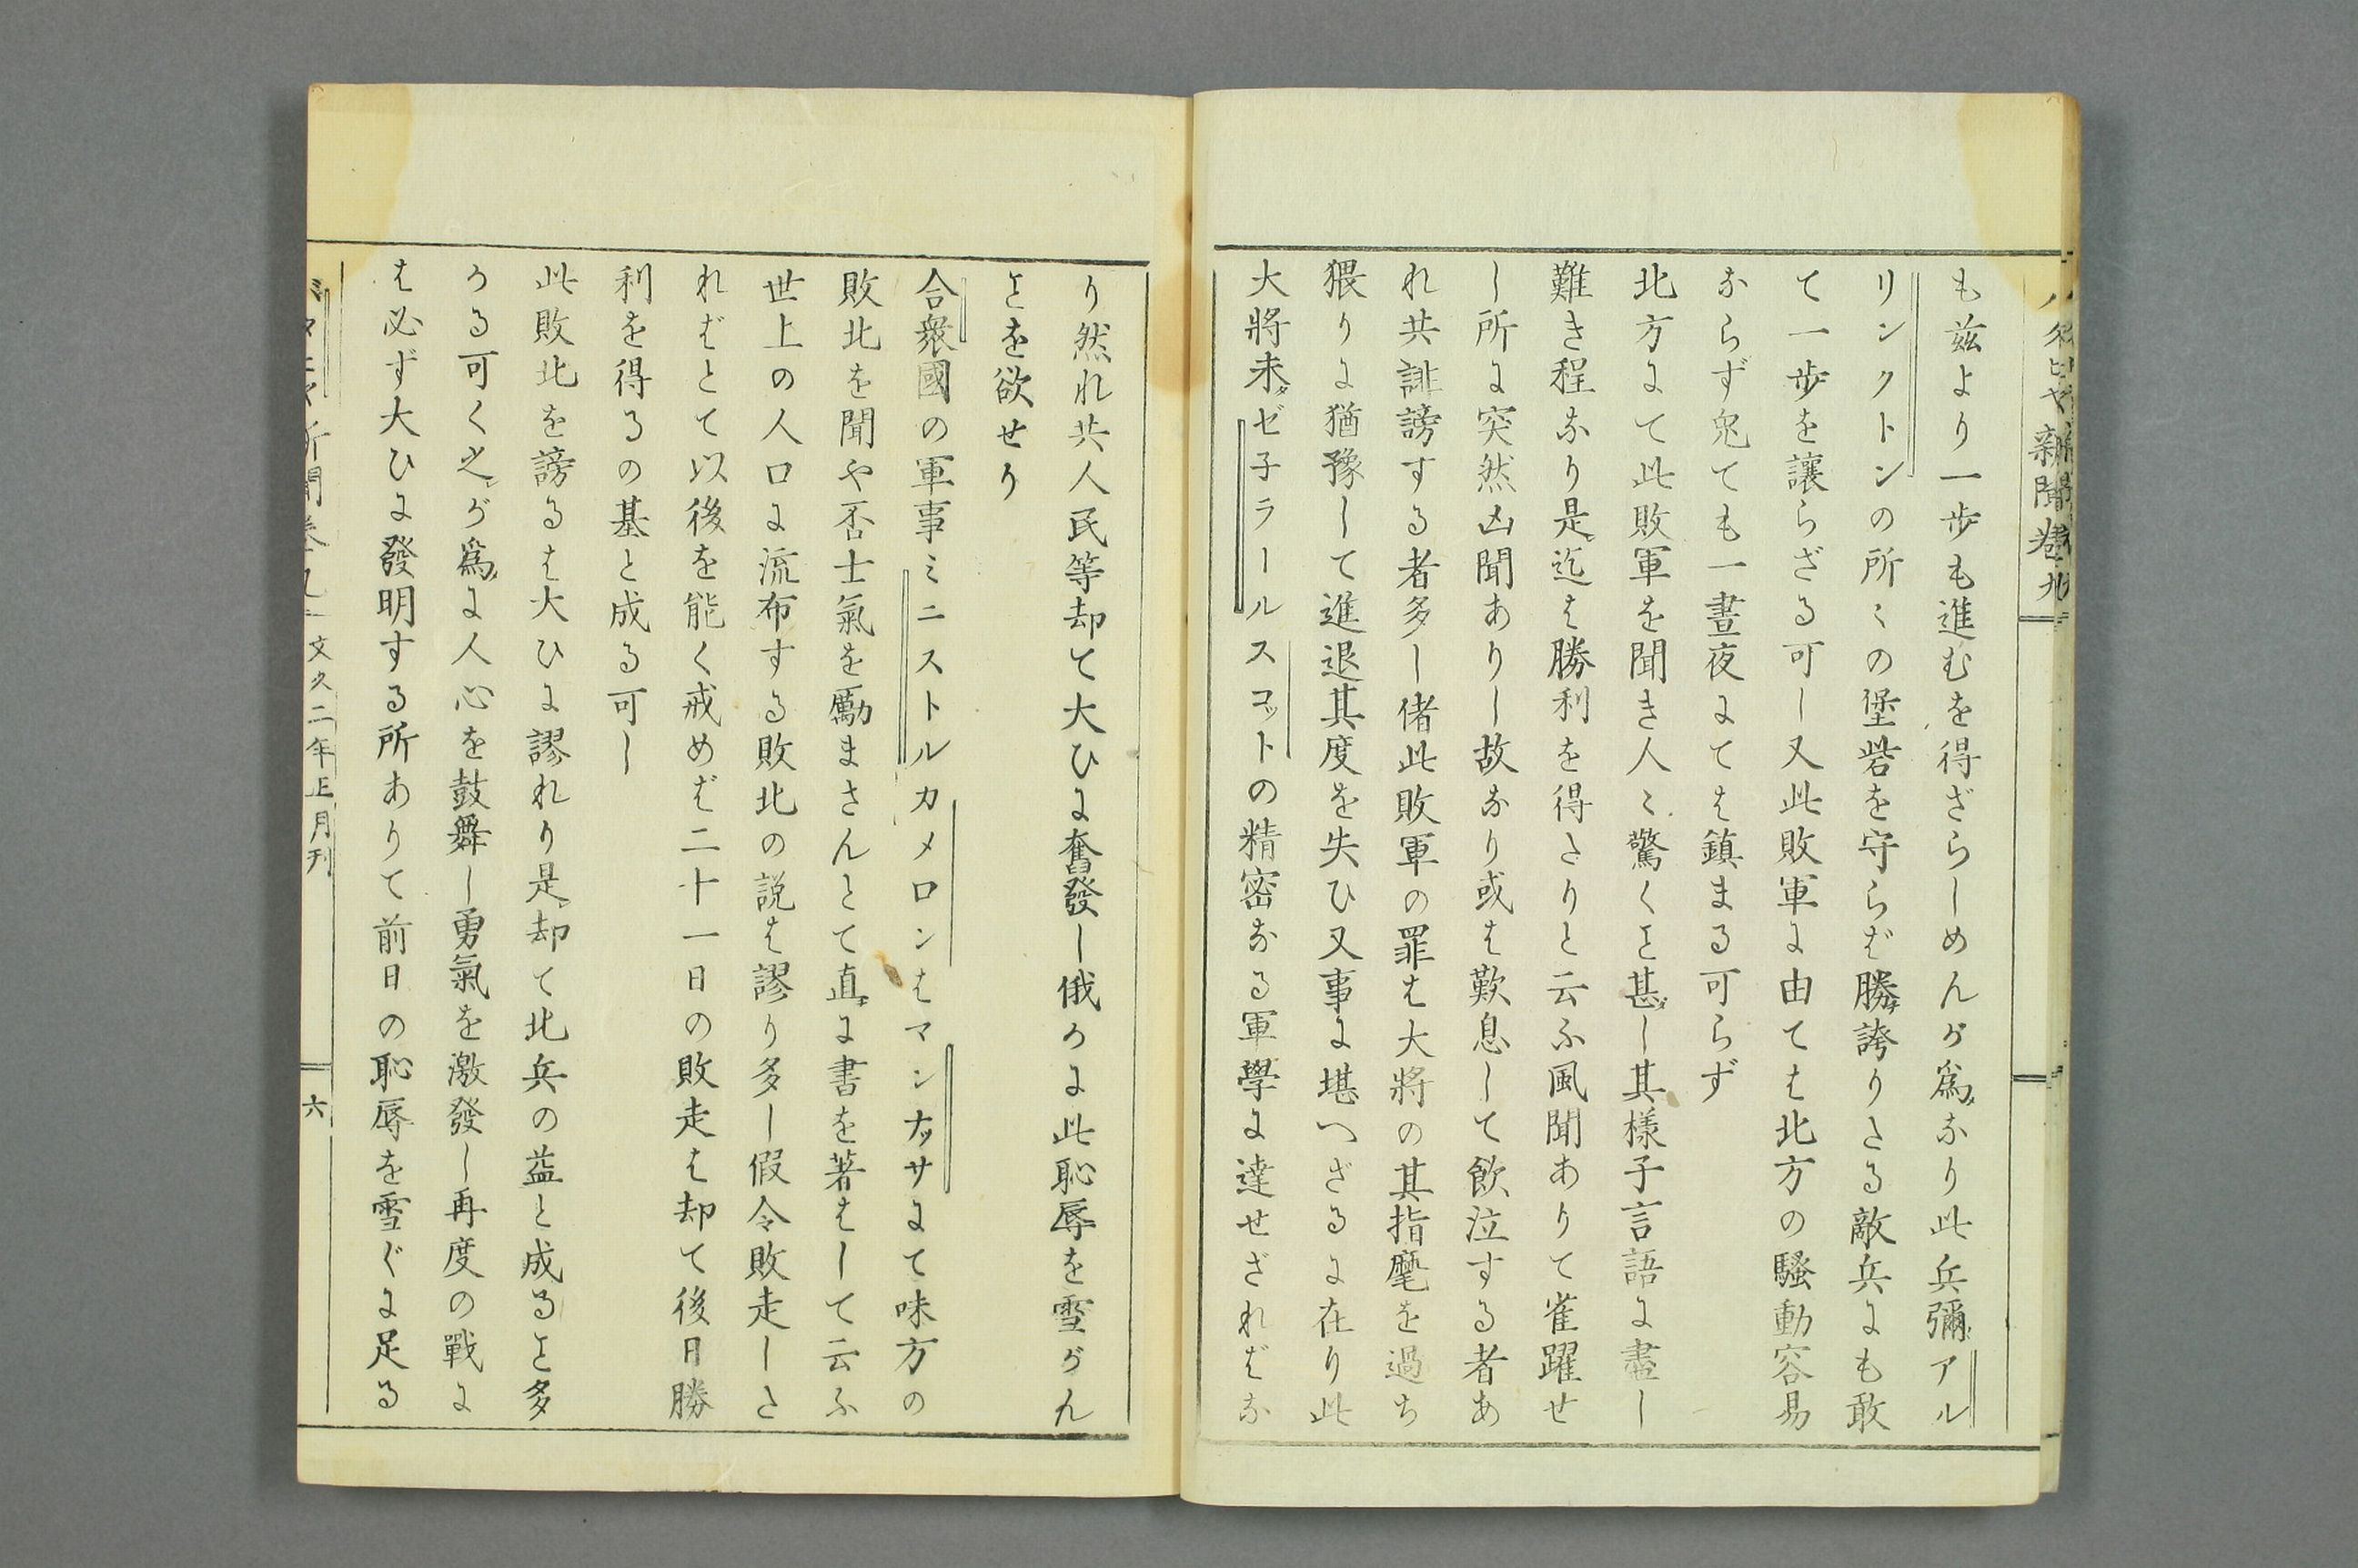 も茲より一歩も進むを得ざらしめんが爲なり此兵彌アル
リンクトンの所〻の堡砦を守らば勝誇りたる敵兵にも敢
て一歩を讓らざる可し又此敗軍に由ては北方の騷動容易
ならず兎ても一晝夜にては鎮まる可らず
北方にて此敗軍を聞き人〻驚くこと甚し其様子言語に盡し
難き程なり是迄は勝利を得たりと云ふ風聞ありて雀躍せ
し所に突然凶聞ありし故なり或は歎息して飲泣する者あ
れ共誹謗する者多し偖此敗軍の罪は大將の其指麾を過ち
猥りに猶豫して進退其度を失ひ又事に堪へざるに在り此
大將未ゼ子ラールスコットの精密なる軍學に達せざればな
り然れ共人民等却て大ひに奮發し俄かに此恥辱を雪がん
ことを欲せり
合衆國の軍事ミニストルカメロンはマンナッサにて味方の
敗北を聞や否士氣を勵まさんとて直に書を著はして云ふ
世上の人口に流布する敗北の説は謬り多し假令敗走した
ればとて以後を能く戒めば二十一日の敗走は却て後日勝
利を得るの基と成る可し
此敗北を謗るは大ひに謬れり是却て北兵の益と成ること多
かる可く之が爲に人心を鼓舞し勇氣を激發し再度の戰に
は必ず大ひに發明する所ありて前日の恥辱を雪ぐに足る
文久二年正月刊
六